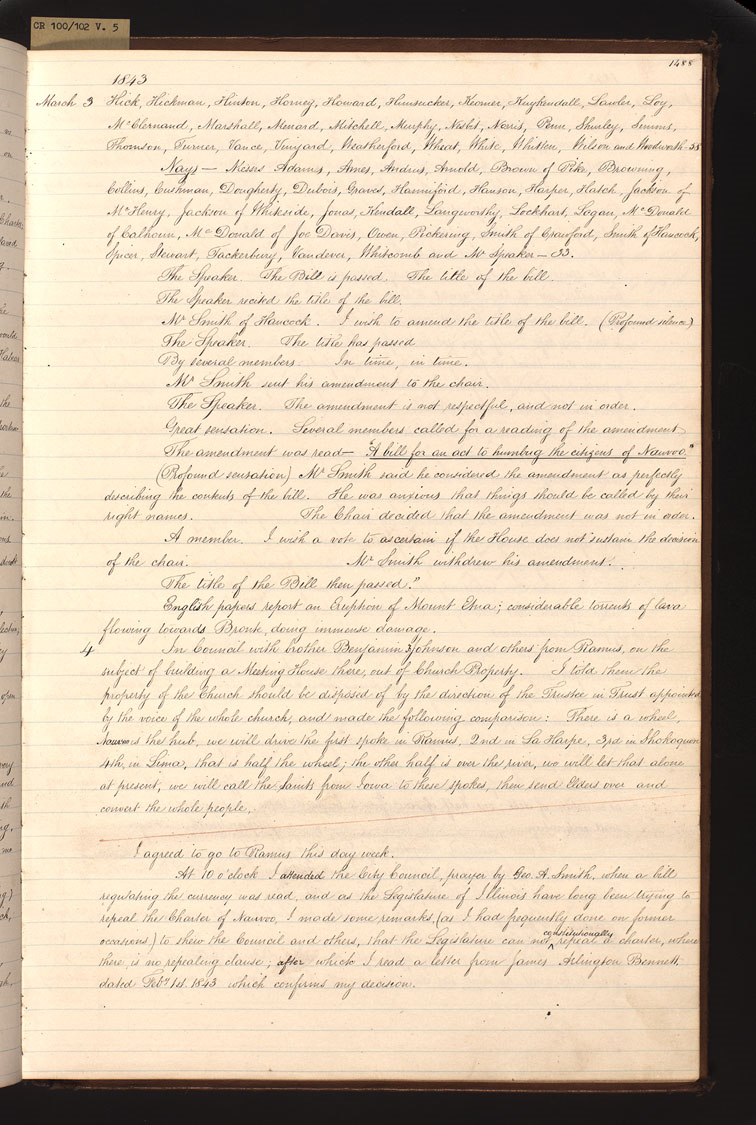 CR 100/102 V. 5
1488
1843
March 3 Hick, Hickman, Hinton, Horney, Howard, Hunsucker, Keomer, Kuykendall, Lawler, Loy,
McClernand, Marshall, Menard, Mitchell, Murphy, Nesbit, Norris, Penn, Shirley, Simms,
Thomson, Turner, Vance, Vinyard, Weatherford, Wheat, White, Whitten, Wilson and Woodworth - 58
Nays — Messrs Adams, Ames, Andrus, Arnold, Brown of Pike, Browning,
Collins, Cushman, Dougherty, Dubois, Graves, Hanniford, Hanson, Harper, Hatch, Jackson of
McHenry, Jackson of Whiteside, Jonas, Kendall, Langworthy, Lockhart, Logan, McDonald
of Calhoun, McDonald of Joe Davis, Owen, Pickering, Smith of Crawford, Smith of Hancock,
Spicer, Stewart, Tackerbury, Vandever, Whitcomb and Mr Speaker — 33.
The Speaker. The Bill is passed. The title of the bill.
The Speaker recited the title of the bill.
Mr Smith of Hancock. I wish to amend the title of the bill. (Profound silence)
The Speaker. The title has passed
By several members. In time, in time.
Mr Smith sent his amendment to the chair.
The Speaker. The amendment is not respectful, and not in order.
Great sensation. Several members called for a reading of the amendment
The amendment was read — "A bill for an act to humbug the citizens of Nauvoo."
(Profound sensation) Mr Smith said he considered the amendment as perfectly
describing the contents of the bill. He was anxious that things should be called by their
right names. The Chair decided that the amendment was not in order.
A member. I wish a vote to ascertain if the House does not sustain the decision
of the chair. Mr Smith withdrew his amendment.
The title of the Bill then passed."
English papers report an Eruption of Mount Etna; considerable torrents of lava
flowing towards Bronte, doing immense damage.
4 In Council with brother Benjamin F Johnson and others from Ramus, on the
subject of building a Meeting House there, out of Church Property. I told them the
property of the Church should be disposed of by the direction of the Trustee in Trust appointed
by the voice of the whole church, and made the following comparison: There is a wheel,
Nauvoo is the hub, we will drive the first spoke in Ramus, 2nd in La Harpe, 3rd in Shokoquon
4th, in Lima, that is half the wheel; the other half is over the river, we will let that alone
at present, we will call the Saints from Iowa to these spokes, then send Elders over and
convert the whole people.
I agreed to go to Ramus this day week.
At 10 o'clock I attended the City Council, prayer by Geo. A. Smith, when a bill
regulating the currency was read, and as the Legislature of Illinois have long been trying to
repeal the Charter of Nauvoo, I made some remarks, (as I had frequently done on former
occasions,) to shew the Council and others, that the Legislature can not constitutionally repeal a charter, where
there is no repealing clause; after which I read a letter from James Arlington Bennett
dated Feby 1st. 1843 which confirms my decision.